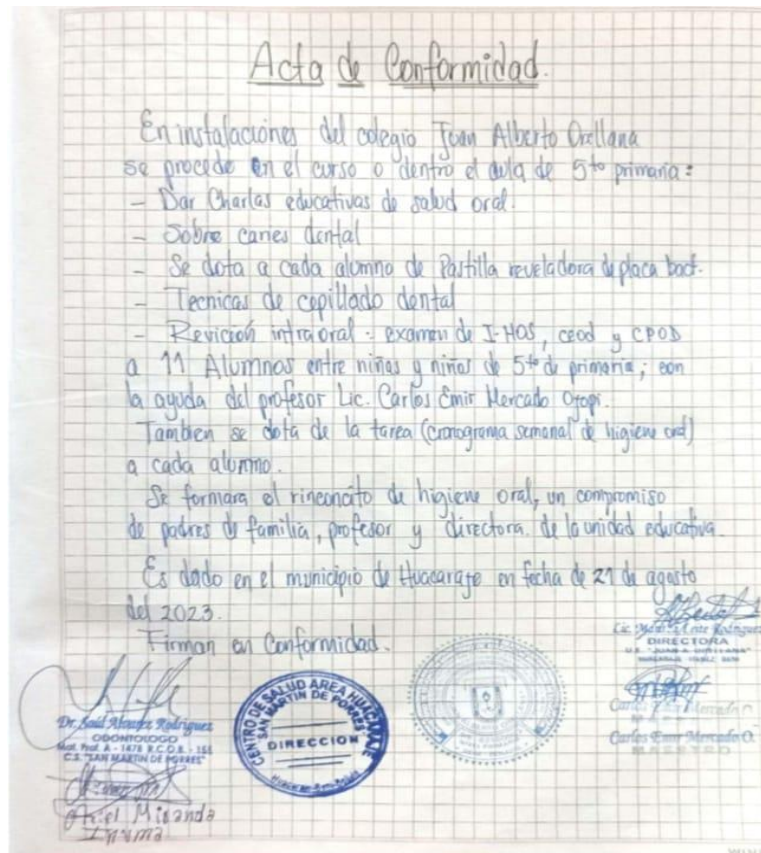 Acta de Conformidad.
En instalaciones del colegio Juan Alberto Orellana
se procede en el curso o dentro el aula de 5to primaria:
- Dar Charlas educativas de salud oral.
- Sobre caries dental
- Se dota a cada alumno de Pastilla reveladora de placa bact.
- Tecnicas de cepillado dental
- Revición intraoral - examen de I-HOS, ceod y CPOD
a 11 Alumnos entre niñas y niños de 5to de primaria; con
la ayuda del profesor Lic. Carlos Emir Mercado
Tambien se dota de la tarea (cronograma semanal de higiene oral)
a cada alumno.
Se formara el rinconcito de higiene oral, un compromiso
de padres de familia, profesor y directora de la unidad educativa.
Es dado en el municipio de Huacaraje en fecha de 21 de agosto
del 2023.
Firman en Conformidad.
Rodriguez
DIRECTORA
Carlos Emir Mercado O.
MAESTRO
Carlos Emir Mercado O.
MAESTRO
Dr. Saúl Rodriguez
ODONTOLOGO
Mat. Prof. A - 1478 R.C.O.B. - 168
C.S. "SAN MARTIN DE PORRES"
Ariel Miranda
CENTRO DE SALUD AREA HUACARAJE
SAN MARTIN DE PORRES
DIRECCION